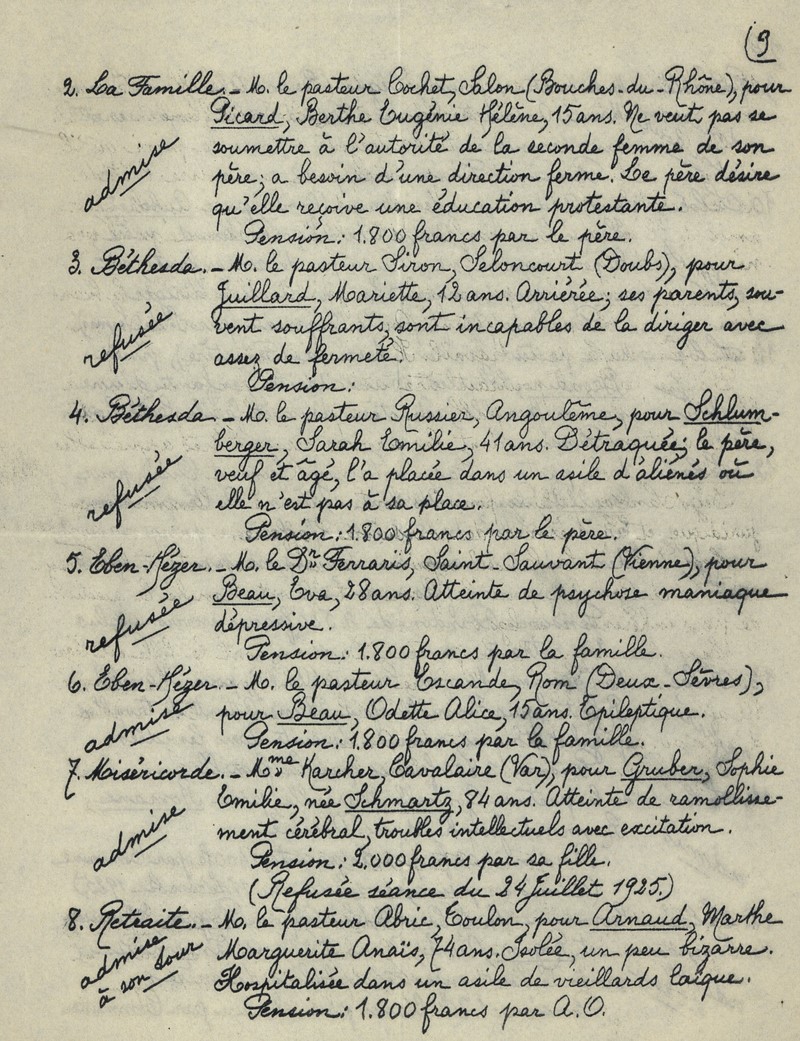 (9
2. La Famille. - M. le pasteur Cochet, Salon (Bouches-du-Rhône), pour
Picard, Berthe Eugénie Hélène, 15 ans. Ne veut pas se
admise
soumettre à l'autorité de la seconde femme de son
père; a besoin d'une direction ferme. Le père désire
qu'elle reçoive une éducation protestante.
Pension: 1.800 francs par le père.
3. Béthesda. - M. le pasteur Siron, Seloncourt (Doubs), pour
Juillard, Mariette, 12 ans. Arriérée; ses parents, sou-
refusée
vent souffrants, sont incapables de la diriger avec
assez de fermeté.
Pension:
4. Béthesda - M. le pasteur Russier, Angoulême, pour Schlum-
berger, Sarah Emilie, 41 ans. Détraquée; le père,
refusée
veuf et âgé, l'a placée dans un asile d'aliénés où
elle n'est pas à sa place.
Pension: 1.800 francs par le père.
5. Eben-Hézer. - M. le Dr Ferraris, Saint-Sauvant (Vienne), pour
Beau, Eva, 28 ans. Atteinte de psychose maniaque
refusée
dépressive.
Pension: 1.800 francs par la famille.
6. Eben-Hézer. - M. le pasteur Escande, Rom (Deux-Sèvres),
pour Beau, Odette Alice, 15 ans. Epileptique.
admise
Pension: 1.800 francs par la famille.
7. Miséricorde. - Mme Karcher, Cavalaire (Var), pour Gruber, Sophie
Emilie, née Schmartz, 84 ans. Atteinte de ramollisse-
admise
ment cérébral, troubles intellectuels avec excitation.
Pension: 2.000 francs par sa fille.
(Refusée séance du 24 Juillet 1925.)
8. Retraite. - M. le pasteur Abric, Toulon, pour Arnaud, Marthe
admise
à son tour
Marguerite Anaïs, 74 ans. Isolée, un peu bizarre.
Hospitalisée dans un asile de vieillards laïque.
Pension: 1.800 francs par A.O.